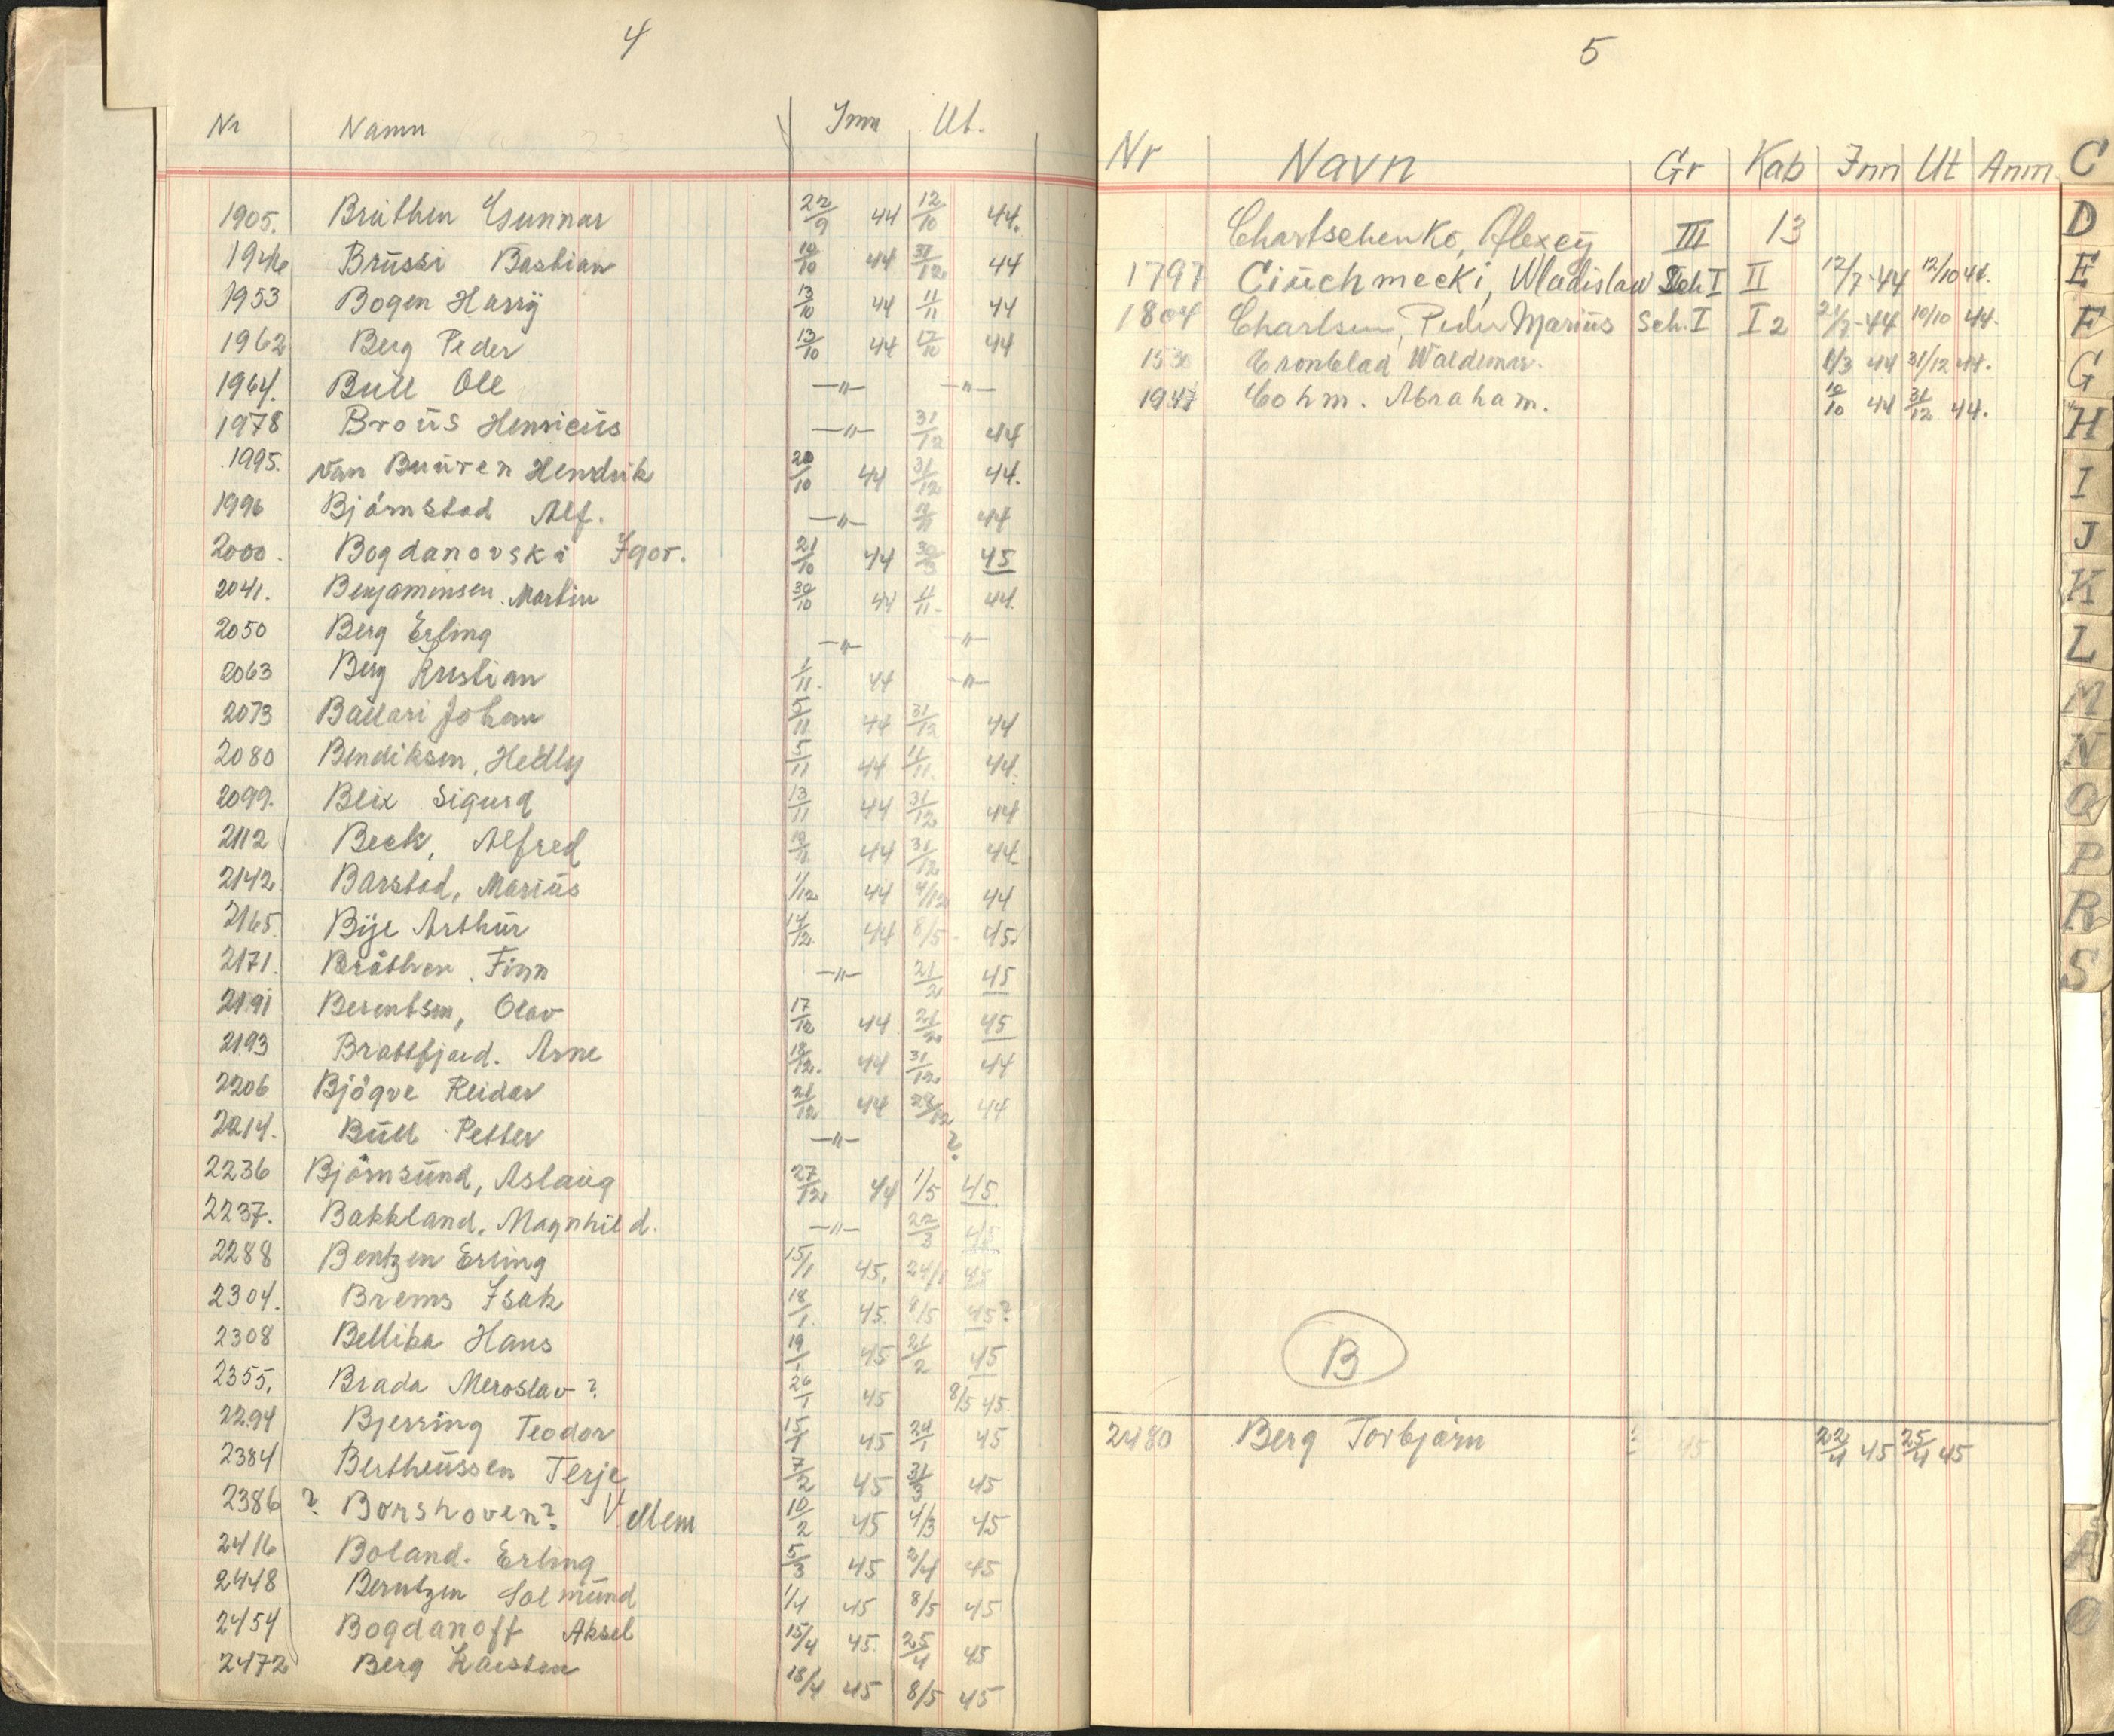 4
Nr Namn Inn Ut.
1905. Bråthen Gunnar 22/9 44 12/10 44.
1946 Brüssi Bastian 10/10 44 31/12 44
1953 Bogen Harrÿ 13/10 44 11/11 44
1962 Berg Peder 13/10 44 17/10 44
1964. Bull Ole —"— —"—
1978 Broüs Henricüs —"— 31/12 44
1995. van Buüren Hendrik 20/10 44 31/12 44.
1996 Björnstad Alf. —"— 44
2000. Bogdanovski Igor. 21/10 44 30/3 45
2041. Benjaminsen. Martin 30/10 44 11/11 44.
2050 Berg Erling —"— —"—
2063 Berg Kristian 1/11. 44 —"—
2073 Ballari Johan 5/11 44 31/12 44
2080 Bendiksen, Hedly 5/11 44 11/11. 44.
2099. Blix Sigurd 13/11 44 31/12 44
2112 Beck, Alfred 44 31/12 44
2142 Barstad, Mariüs 1/12 44 4/12 44
2165. Bije Arthür 14/12. 44 8/5 - 45
2171. Bråthen. Finn —"— 21/2 45
2191 Berentsen, Olav 17/12 44 21/2 45
2193 Brattfjord. Arne 18/12. 44 31/12 44
2206 Bjögve Reidar 21/12 44 28/12 44
2214. Büll Petter —"— ?
2236 Björnsünd, Aslaüg 27/12 44 1/5 45
2237. Bakkland, Magnhild. —"— 22/3 45
2288 Bentzen Erling 15/1 45. 24/1 45
2304. Brems Isak 18/1. 45. 8/5 45?
2308 Bellika Hans 19/1 45 21/2 45
2355. Brada Meroslav? 26/1 45 8/5 45.
2294 Bjerring Teodor 15/1 45 24/1 45
2384 Bertheüssen Terje 7/2 45 31/3 45
2386 ? Borshoven? V 10/2 45 4/3 45
2416 Boland. Erling 5/3 45 45
2448 Berntzen Solmünd 1/4 45 8/5 45
2454 Bogdanoff Aksel 15/4 45. 25/4 45
2472 Berg Karsten 18/4 45 8/5 45
5
Nr Navn Gr Kab Inn Ut Anm.
Chartschenko, Alexey III 13
1797 Ciüchmecki, Wladislaw Sch I II 12/7-44 12/10 44.
1804 Charlsen, Peder Mariüs Sch. I I 2 44 10/10 44.
1530 Cronblad Waldemar. 8/3 44 31/12 44.
1947 Cohm. Abraham. 10/10 44 31/12 44.
B
2480 Berg Torbjørn ? 45 22/4 45 25/4 45
C
D
E
F
G
H
I
J
K
L
M
N
O
P
R
S